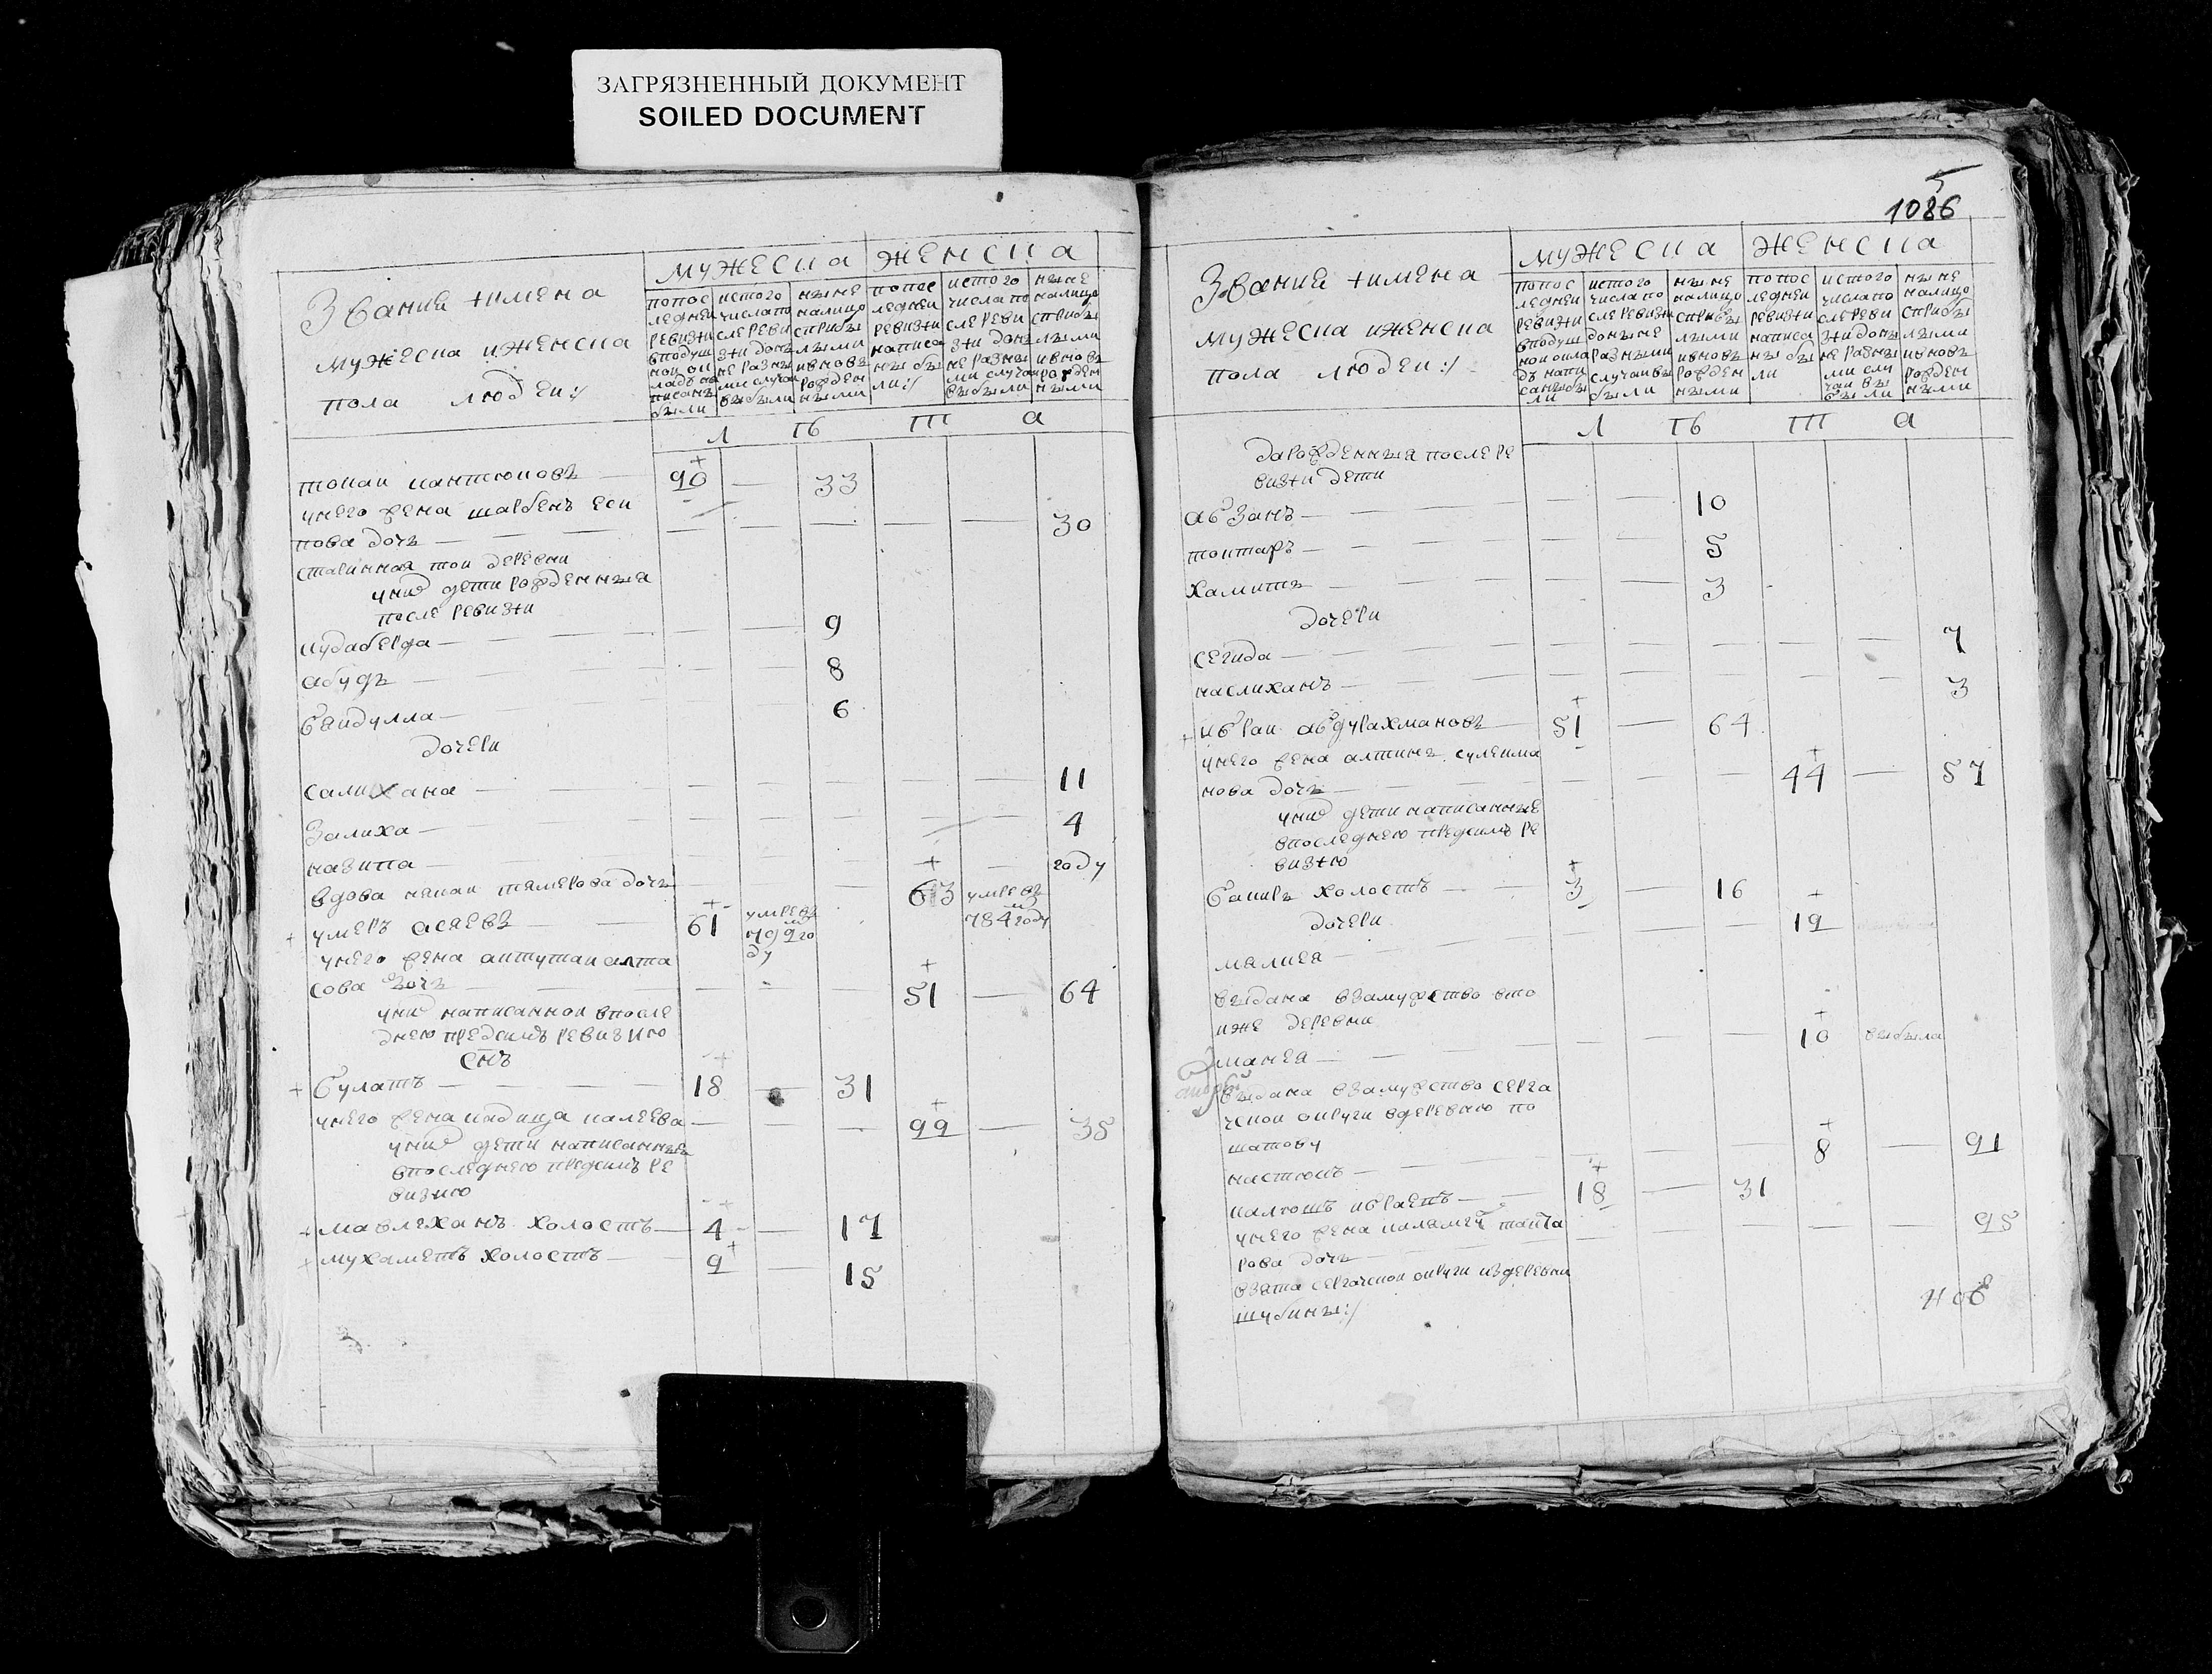 ЗАГРЯЗНЕННЫЙ ДОКУМЕНТ
SOILED DOCUMENT
Звании имена
мужеска иженска
пола людеи:/
мужеска женска
попос
ледней
ревизiи
вподуш
ной ок
ладъ на
писанъ
были
истого
числа по
сле реви
зiи донъ
не разны
ми случаи
выбыли
ныне
налицо
сприбы
лыми
ивновь
рожден
ными
попос
ледней
ревизiи
написа
ны бы
ли:/
истого
числа по
сле реви
зiи донъ
не разны
ми случаи
выбыли
ныне
налицо
сприбы
лыми
ивновь
рожден
ными
л ѣ т а
токаи кантюковъ 90 33
унего жена шарбенъ еси
пова дочь 30
старинная тои деревни
унихъ дети рожденныя
после ревизiи
кудаберда 9
абудъ 8
баидулла 6
дочери
салихана 11
залиха 4
назипа году
вдова некаи темерова дочь 63 умре въ
784 году
умеръ асяевъ 61 умре въ
799 го
ду
унего жена аитутаи алта
сова дочь 51 64
унихъ написаннои впосле
днею предсимъ ревизию
снъ
булатъ 18 31
унего жена кадица калеева 99 35
унихъ дети написанныя
впоследнею предсимъ ре
визию
мавлеханъ холостъ 4 17
мухаметъ холостъ 9 15
1086
Звании имена
мужеска иженска
пола людеи:/
мужеска женска
попос
ледней
ревизiи
вподуш
нои окла
дъ напи
саны бы
ли
истого
числа по
сле ревизiи
доныне
разными
случаи вы
были
ныне
налицо
сприбы
лыми
ивновь
рожден
ными
попос
ледней
ревизiи
написа
ны бы
ли
истого
числа по
сле реви
зiи донъ
не разны
ми слу
чаи вы
были
ныне
налицо
сприбы
лыми
ивновь
рожден
ными
л ѣ т а
дарожденныя после ре
визiи дети
абзанъ 10
токтаръ 5
хамитъ 3
дочери
сегида 7
наслиханъ 3
ибраи абдурахмановъ 51 64
унего жена алтинъ сулеима
нова дочь 44 57
унихъ дети написанные
впоследнею предсимъ ре
визiю
бакиръ холостъ 3 16
дочери 19
малиея
выдана взамужство вто
иже деревни
манея 10 выбыла
выдана взамужство серга
чскои округи вдеревню по
шатову
настюкъ 8 91
калюшъ ибраевъ 18 31
унего жена калямеи таита
рова дочь 95
взята сергачскои округи издеревни
шубины:/